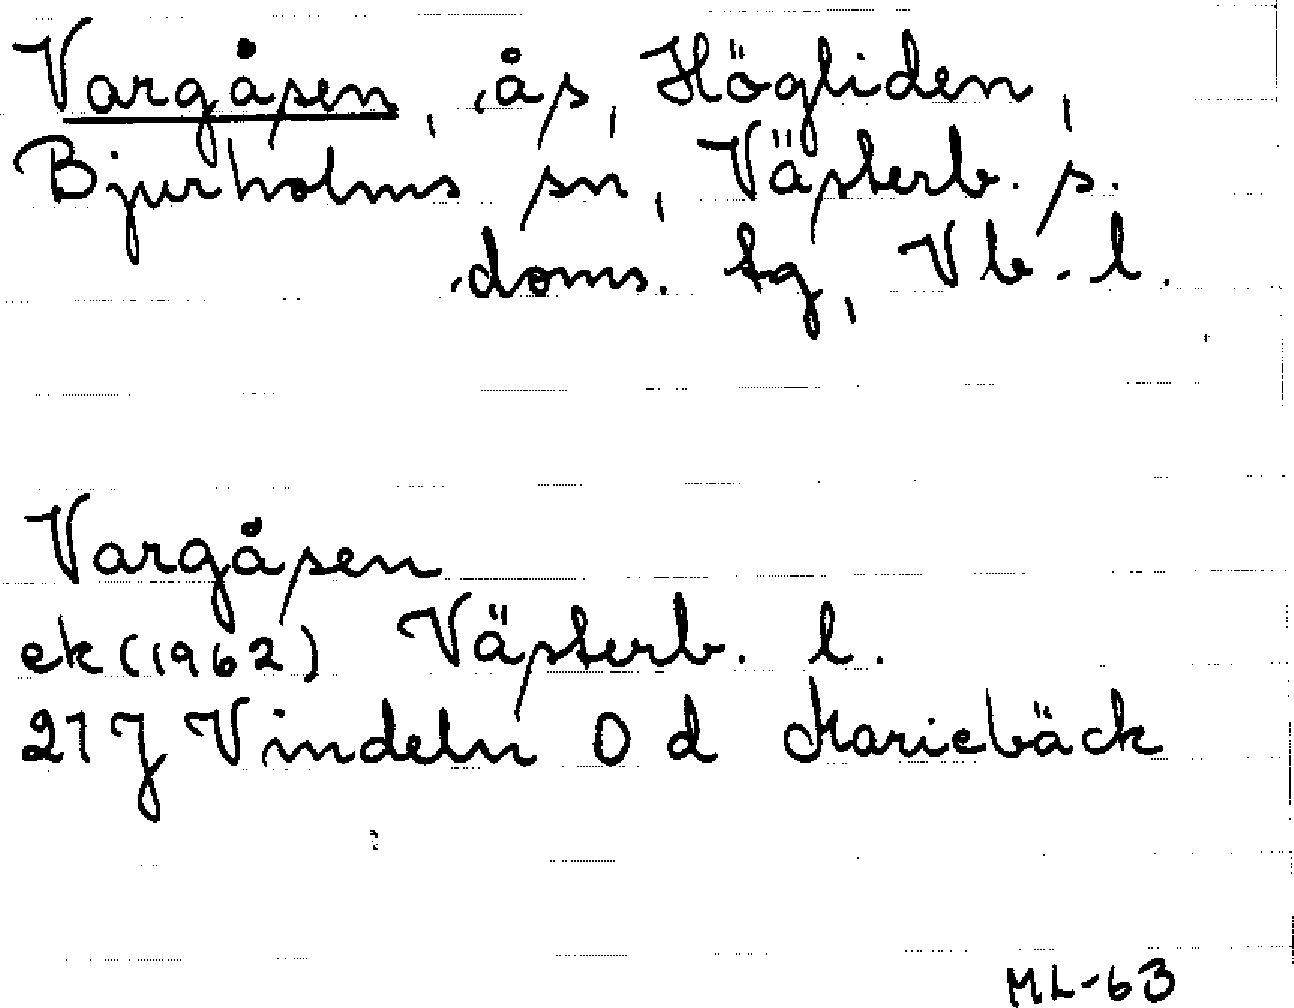 Vargåsen, ås, Högliden,
Bjurholms sn, Västerb. s.
doms. tg, Vb. l.
Vargåsen
ek (1962) Västerb. l.
21 J Vindeln 0 d Mariebäck
ML-63